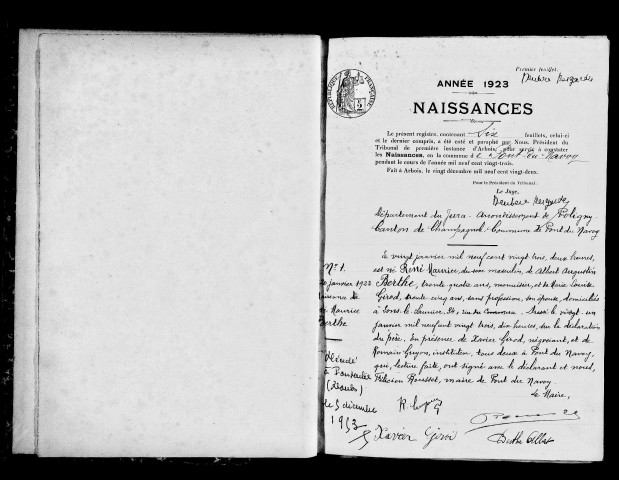 Premier feuillet.
ANNÉE 1923
NAISSANCES
Le présent registre, contenant Dix feuillets, celui-ci
et le dernier compris, a été coté et paraphé par Nous, Président du
Tribunal de première instance d'Arbois, pour servir à constater
les Naissances, en la commune de Pont-du-Navoy
pendant le cours de l'année mil neuf cent vingt-trois.
Fait à Arbois, le vingt décembre mil neuf cent vingt-deux.
Pour le Président du Tribunal:
Le Juge,
Département du Jura - Arrondissement de Poligny
Canton de Champagnole - Commune de Pont du Navoy
N° 1.
janvier 1923
de
Maurice
Berthe
Le vingt janvier mil neuf cent vingt trois, deux heures,
est né René Maurice, du sexe masculin, de Albert Augustin
Berthe, trente quatre ans, menuisier, et de Marie Louise
Girod, trente cinq ans, sans profession, son épouse, domiciliés
à Lons-le-Saunier, rue du Commerce. Dressé le vingt un
janvier mil neuf cent vingt trois, dix heures, sur la déclaration
du père. En présence de Xavier Girod, négociant, et de
Romain Guyon, instituteur, tous deux à Pont du Navoy,
qui, lecture faite, ont signé avec le déclarant et nous,
Rousset, maire de Pont du Navoy.
Le Maire,
Décédé
à Pontarlier
(Doubs)
le 5 décembre
1953
Xavier Girod
Berthe Albert